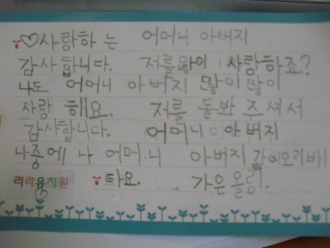 ♡사랑하는 어머니 아버지
감사합니다. 저를많이 사랑하죠?
나도 어머니 아버지 많이많이
사랑해요. 저를 돌봐 주셔서
감사합니다. 어머니 아버지
나중에 나 어머니 아버지
라라유치원 타요. 가은올림.